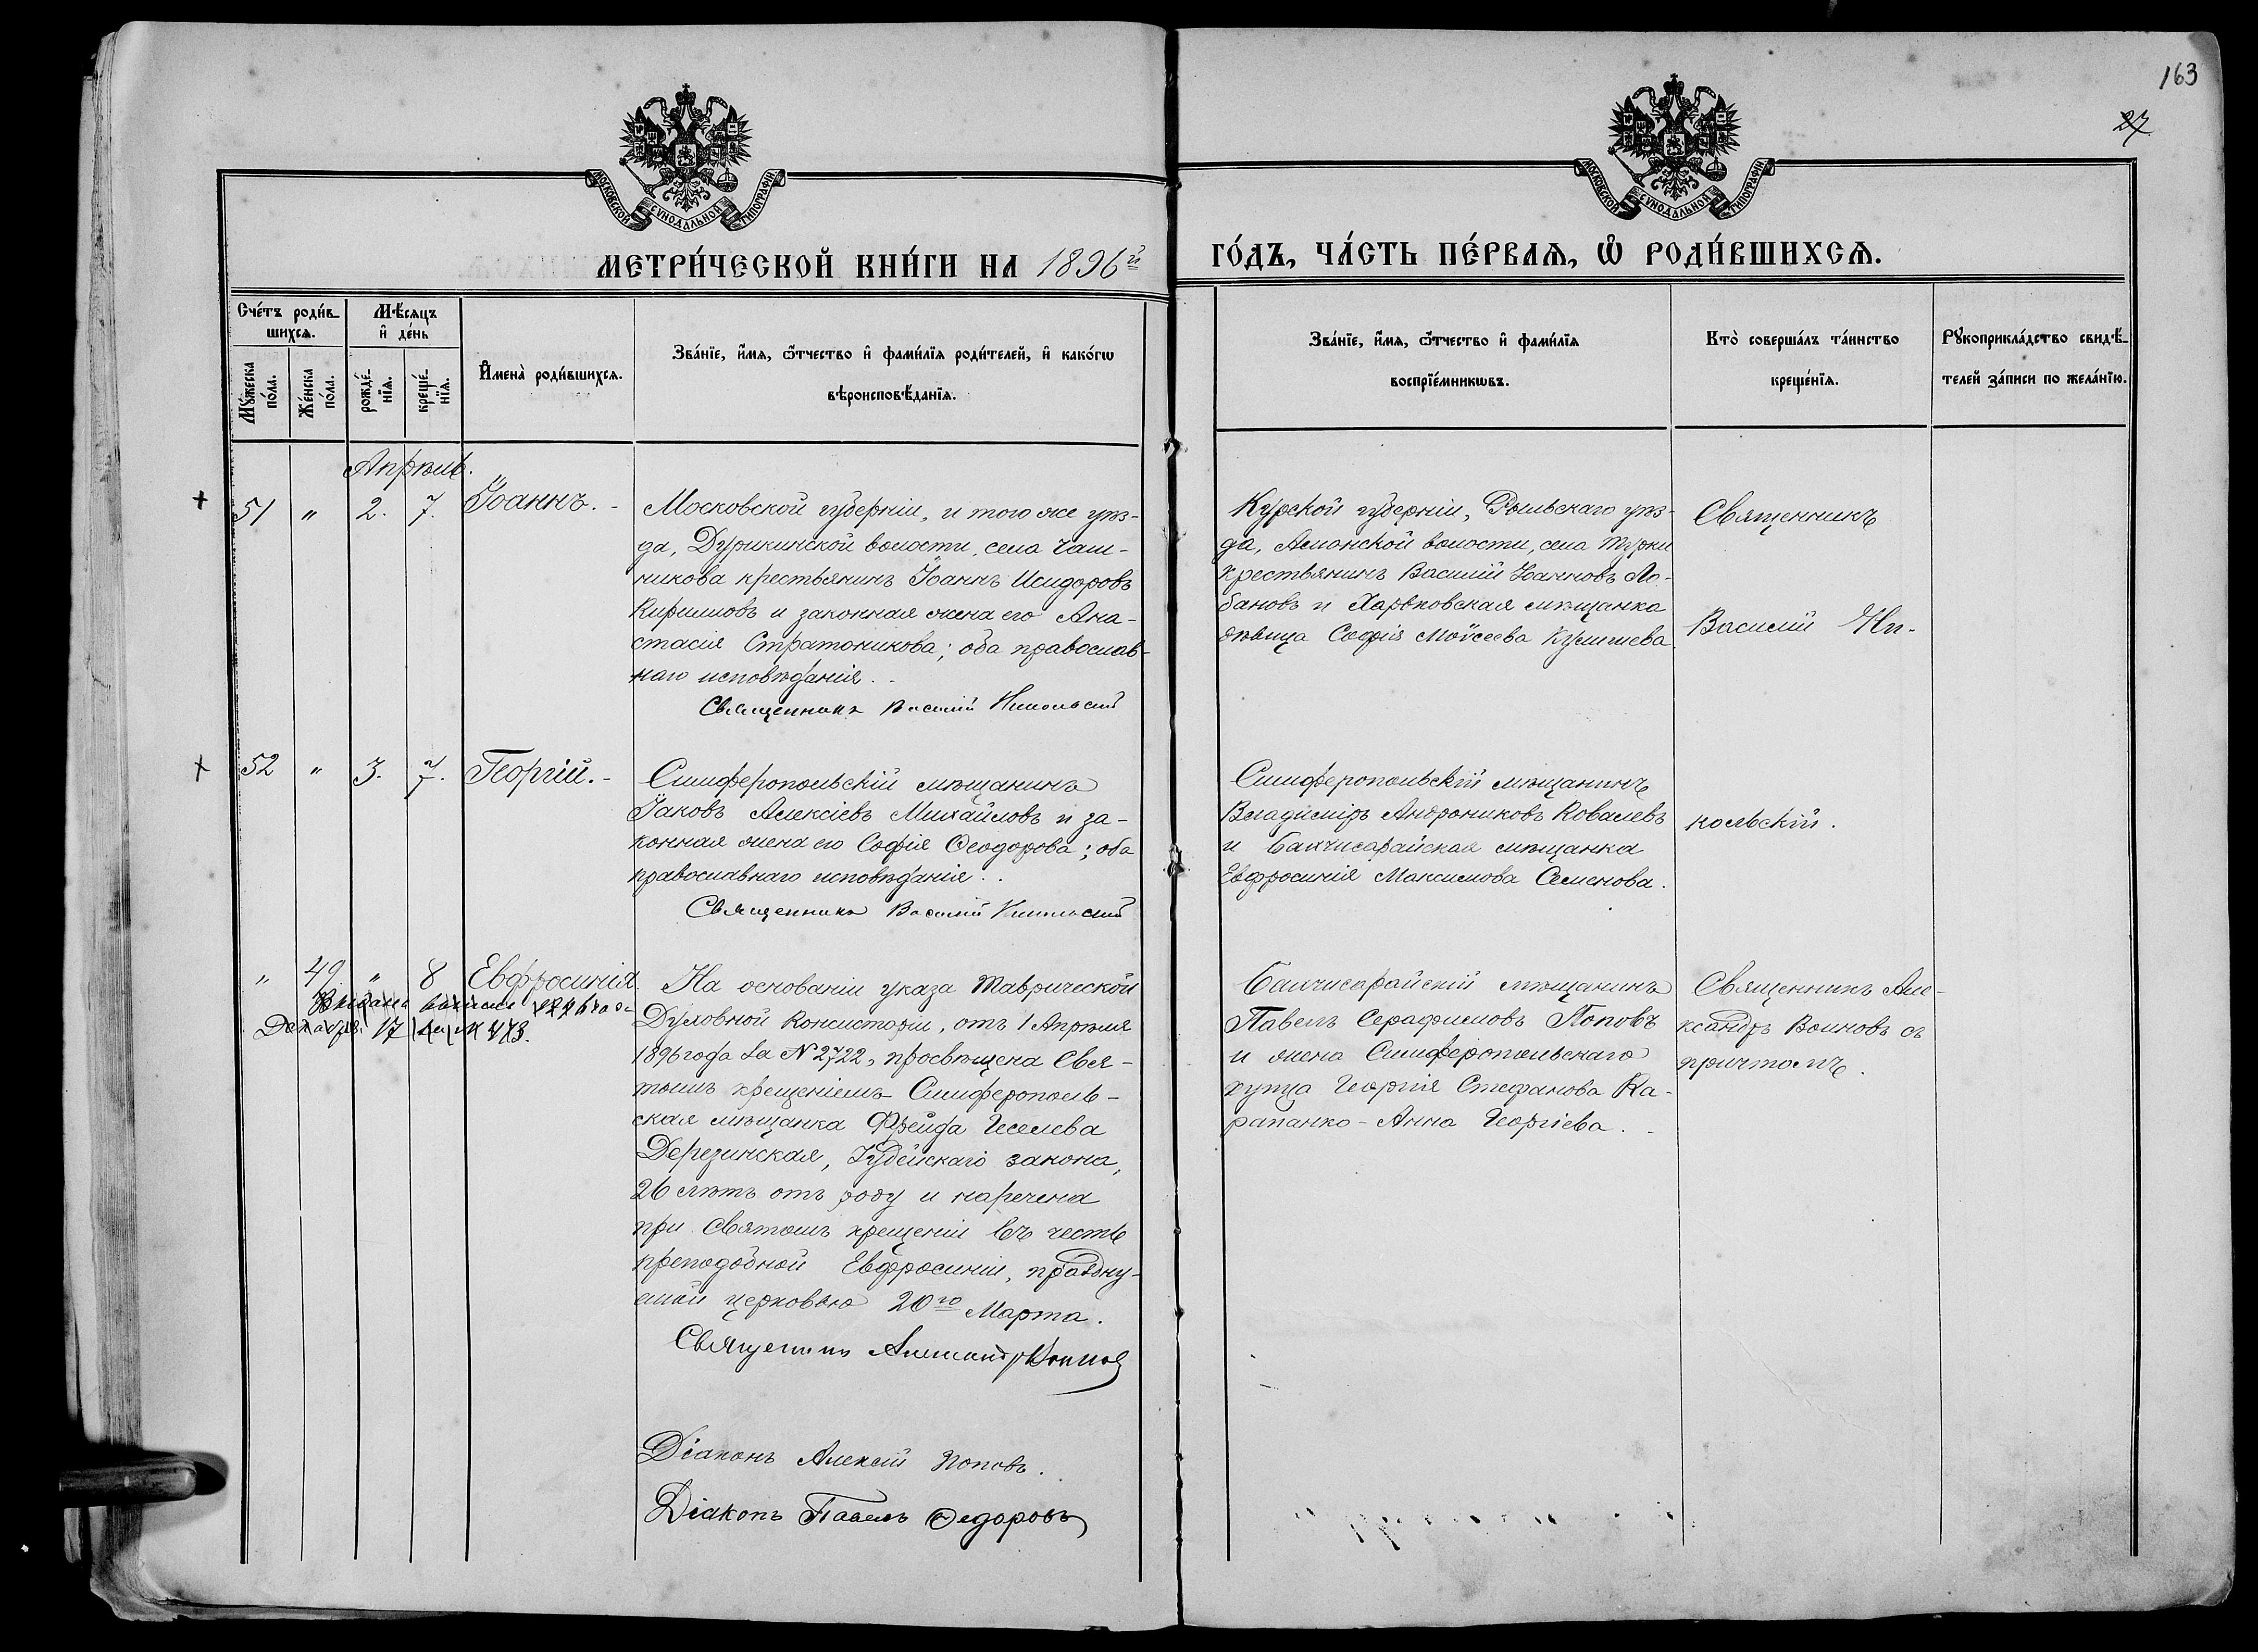 163
27
МОСКОВСКОЙ СѴНОДАЛЬНОЙ ТИПОГРАФІИ
МОСКОВСКОЙ СѴНОДАЛЬНОЙ ТИПОГРАФІИ
МЕТРИ́ЧЕСКОЙ КНИ́ГИ НА 1896й
ГО́ДЪ, ЧА́СТЬ ПЕ́РВАѦ, Ѡ҆ РОДИ́ВШИХСѦ.
Сче́тъ роди́в-
шихсѧ.
Мꙋ́жеска
по́ла.
Же́нска
по́ла.
Мѣ́сѧцъ
и҆ де́нь
рожде́-
нїѧ.
креще́-
нїѧ.
И҆мена̀ роди́вшихсѧ.
Зва́нїе, и҆́мѧ, ѻ҆́тчество и҆ фами́лїѧ роди́телей, и҆ како́гѡ
вѣроисповѣ́данїѧ.
Зва́нїе, и҆́мѧ, ѻ҆́тчество и҆ фами́лїѧ
воспрїе́мникѡвъ.
Кто̀ соверша́лъ та́инство
креще́нїѧ.
Рꙋкоприкла́дство свидѣ́-
телей за́писи по жела́нїю.
Апрѣль.
51 " 2. 7. Іоаннъ. -
Московской губерніи, и того же уѣз-
да, Дурикинской волости, села Чаш-
никова крестьянинъ Іоаннъ Исидоровъ
Кирилловъ и законная жена его Ана-
стасія Стратоникова; оба православ-
наго исповѣданія. .
Священникъ Василій Никольскій
Курской губерніи, Рыльскаго уѣз-
да, Асмонской волости, села Турки
крестьянинъ Василій Іоанновъ Ло-
бановъ и Харьковская мѣщанка
дѣвица Софія Моисеева Кулишева.
Священникъ
Василій Ни-
52 " 3. 7. Георгій. -
Симферопольскій мѣщанинъ
Іаковъ Алексіевъ Михайловъ и за-
конная жена его Софія Ѳеодорова; оба
православнаго исповѣданія. .
Священникъ Василій Никольскій
Симферопольскій мѣщанинъ
Владиміръ Андрониковъ Ковалевъ
и Бахчисарайская мѣщанка
Евфросинія Максимова Семенова.
кольскій.
" 49. " 8 Евфросинія.
Выдана выпись 1896 года
Декабря 17
На основаніи указа Таврической
Духовной Консисторіи, отъ 1 Апрѣля
1896 года за № 2722, просвѣщена Свя-
тымъ крещеніемъ Симферополь-
ская мѣщанка Фрейда Геселева
Дерезинская, Іудейскаго закона,
26 лѣтъ отъ роду и наречена
при Святомъ крещеніи въ честь
преподобной Евфросиніи, праздну-
емой церковью 20го Марта.
Священникъ Александръ Воиновъ
Бахчисарайскій мѣщанинъ
Павелъ Серафимовъ Поповъ
и жена Симферопольскаго
купца Георгія Стефанова Ка-
рапанко - Анна Георгіева. -
Священникъ Але-
ксандръ Воиновъ съ
причтомъ.
Діаконъ Алексій Поповъ.
Діаконъ Павелъ Ѳедоровъ